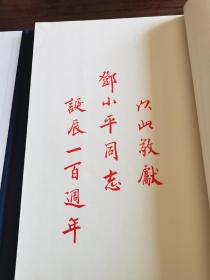 以此敬獻
鄧小平同志
誕辰一百週年